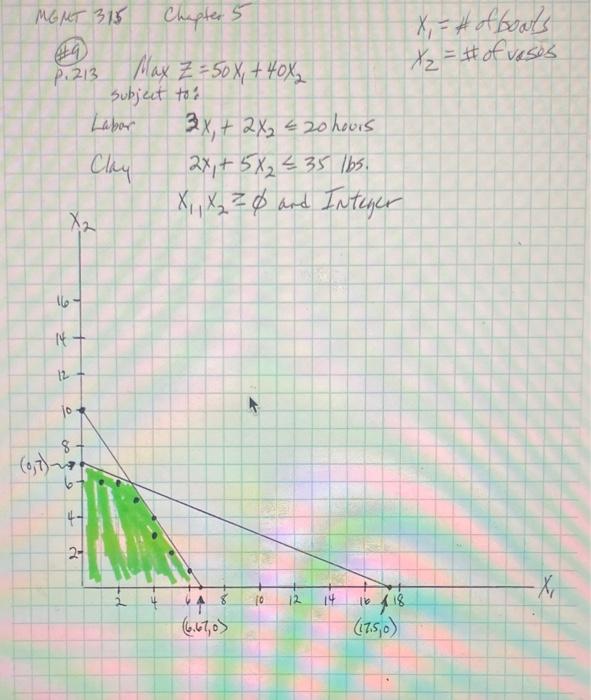 MGMT 315 Chapter 5
X₁ = # of boats
X₂ = # of vases
#9
P. 213 Max Z = 50X₁ + 40X₂
subject to:
Labor 3X₁ + 2X₂ ≤ 20 hours
Clay 2X₁ + 5X₂ ≤ 35 lbs.
X₁, X₂ ≥ ∅ and Integer
X₂
16
14
12
10
8
(0,7)
6
4
2
2 4 6 8 10 12 14 16 18 X₁
(6.67,0) (17.5,0)